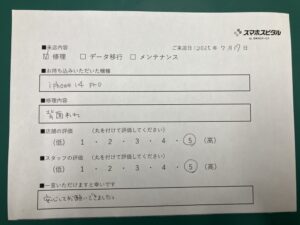 スマホスピタル
■来店内容
ご来店日:2025年9月17日
☑修理 □データ移行 □メンテナンス
■お持ち込みいただいた機種
iphone 14 pro
■修理内容
背面われ
■店舗の評価 (丸を付けて評価してください)
(低) 1 ・ 2 ・ 3 ・ 4 ・ 5 (高)
■スタッフの評価 (丸を付けて評価してください)
(低) 1 ・ 2 ・ 3 ・ 4 ・ 5 (高)
■一言いただけますと幸いです
安心してお願いできました。